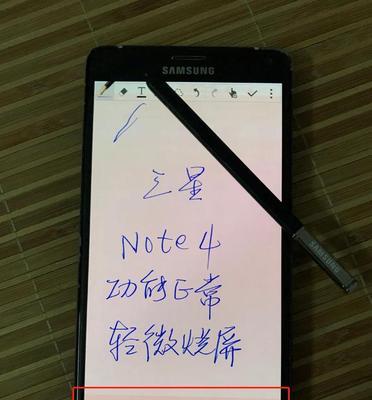 SAMSUNG
T
三星
Note 4
功能正常
轻微烧屏
SAMSUNG